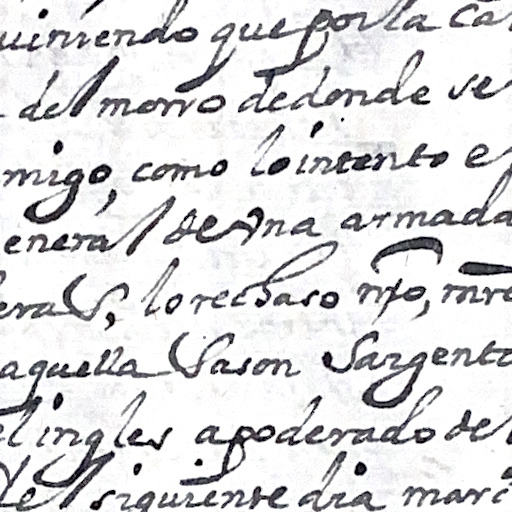 uiniendo que por la ca
del morro dedonde se
migo, como lo intento e
eneral de vna armada
eras, lo rechaso nro, mre
aquella Sason Sargento
el ingles apoderado del
del siguiente dia marc